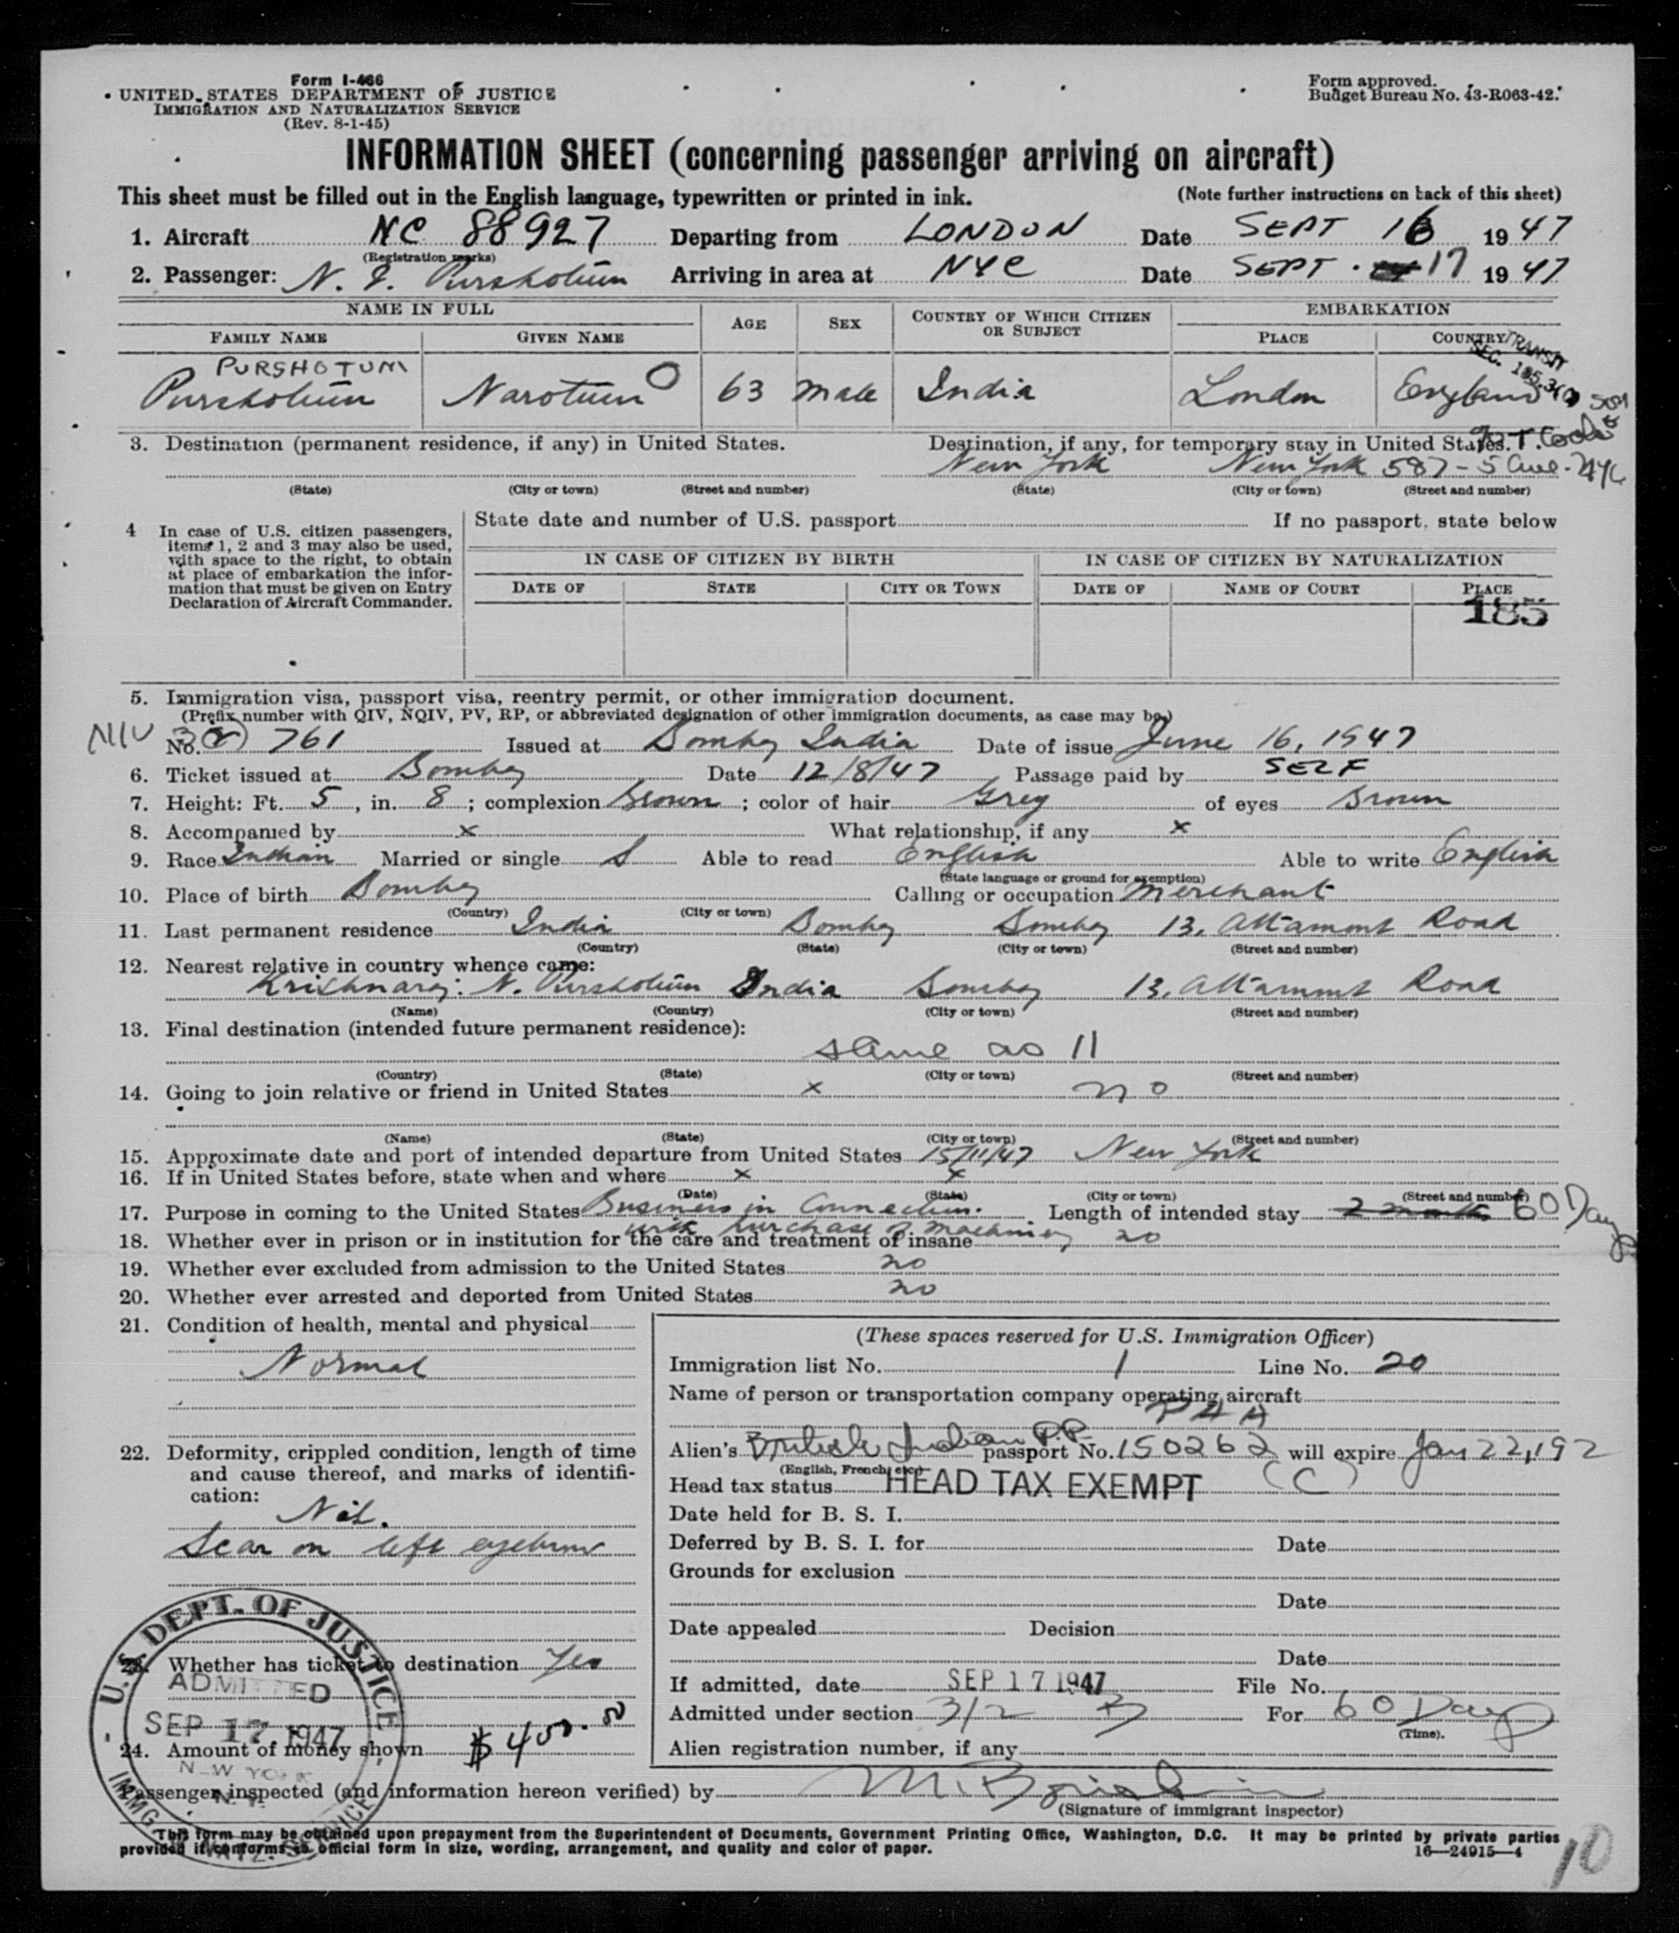 Form I-466
UNITED STATES DEPARTMENT OF JUSTICE
IMMIGRATION AND NATURALIZATION SERVICE
(Rev. 8-1-45)
Form approved.
Budget Bureau No. 43-R063-42.
INFORMATION SHEET (concerning passenger arriving on aircraft)
This sheet must be filled out in the English language, typewritten or printed in ink. (Note further instructions on back of this sheet)
1. Aircraft NC 88927 Departing from LONDON Date SEPT 16 1947
(Registration marks)
2. Passenger: N. Purshotum Arriving in area at NYC Date SEPT. 17 1947
NAME IN FULL AGE SEX COUNTRY OF WHICH CITIZEN OR SUBJECT EMBARKATION
FAMILY NAME GIVEN NAME PLACE COUNTRY
TRANSIT
SEC. 185.3
PURSHOTUM
Purshotum Narotum 63 Male India London England
3. Destination (permanent residence, if any) in United States. Destination, if any, for temporary stay in United States. T. Cook
New York New York 587 - 5 Ave. NYC
(State) (City or town) (Street and number) (State) (City or town) (Street and number)
4 In case of U.S. citizen passengers, items 1, 2 and 3 may also be used, with space to the right, to obtain at place of embarkation the information that must be given on Entry Declaration of Aircraft Commander.
State date and number of U.S. passport If no passport, state below
IN CASE OF CITIZEN BY BIRTH IN CASE OF CITIZEN BY NATURALIZATION
DATE OF STATE CITY OR TOWN DATE OF NAME OF COURT PLACE
185
5. Immigration visa, passport visa, reentry permit, or other immigration document.
(Prefix number with QIV, NQIV, PV, RP, or abbreviated designation of other immigration documents, as case may be.)
NIV No. 761 Issued at Bombay India Date of issue June 16, 1947
6. Ticket issued at Bombay Date 12/8/47 Passage paid by SELF
7. Height: Ft. 5, in. 8; complexion Brown; color of hair Grey of eyes Brown
8. Accompanied by x What relationship, if any x
9. Race Indian Married or single S Able to read English Able to write English
(State language or ground for exemption)
10. Place of birth Bombay Calling or occupation Merchant
(Country) (City or town)
11. Last permanent residence India Bombay Bombay 13, Altamont Road
(Country) (State) (City or town) (Street and number)
12. Nearest relative in country whence came:
Krishnaraj N. Purshotum India Bombay 13, Altamont Road
(Name) (Country) (City or town) (Street and number)
13. Final destination (intended future permanent residence):
same as 11
(Country) (State) (City or town) (Street and number)
14. Going to join relative or friend in United States x no
(Name) (State) (City or town) (Street and number)
15. Approximate date and port of intended departure from United States 15/11/47 New York
16. If in United States before, state when and where x x
(Date) (State) (City or town) (Street and number)
17. Purpose in coming to the United States Business in Connection. Length of intended stay 2 months 60 Days
with purchase of Machinery
18. Whether ever in prison or in institution for the care and treatment of insane no
19. Whether ever excluded from admission to the United States no
20. Whether ever arrested and deported from United States no
21. Condition of health, mental and physical
Normal
22. Deformity, crippled condition, length of time and cause thereof, and marks of identification:
Nil.
Scar on left eyebrow
23. Whether has ticket to destination Yes
24. Amount of money shown $400.00
U.S. DEPT. OF JUSTICE
ADMITTED
SEP 17 1947
NEW YORK
N.Y.
(These spaces reserved for U.S. Immigration Officer)
Immigration list No. 1 Line No. 20
Name of person or transportation company operating aircraft
PAA
Alien's British Indian P.P. passport No. 150262 will expire Jan 22, 192
(English, French, etc.)
Head tax status HEAD TAX EXEMPT (C)
Date held for B. S. I.
Deferred by B. S. I. for Date
Grounds for exclusion
Date
Date appealed Decision
Date
If admitted, date SEP 17 1947 File No.
Admitted under section 3/2 B For 60 Days
(Time).
Alien registration number, if any
Passenger inspected (and information hereon verified) by
(Signature of immigrant inspector)
This form may be obtained upon prepayment from the Superintendent of Documents, Government Printing Office, Washington, D.C. It may be printed by private parties
provided it conforms to official form in size, wording, arrangement, and quality and color of paper. 16—24915—4
10